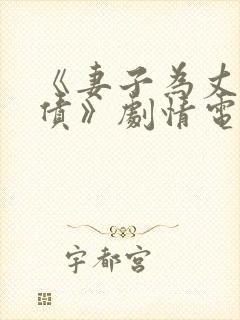 《妻子為丈
債》劇情電
宇都宮